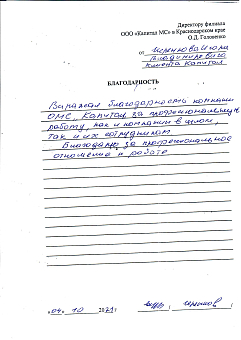 Директору филиала
ООО «Капитал МС» в Краснодарском крае
О.Д. Головенко
от
Владимировича
клиента Капитал
БЛАГОДАРНОСТЬ
Выражаю благодарность компании
ОМС, Капитал за профессиональную
работу, как и компании в целом,
так и их сотрудникам.
Благодарю за профессиональное
отношение к работе
«04» 10 2021г